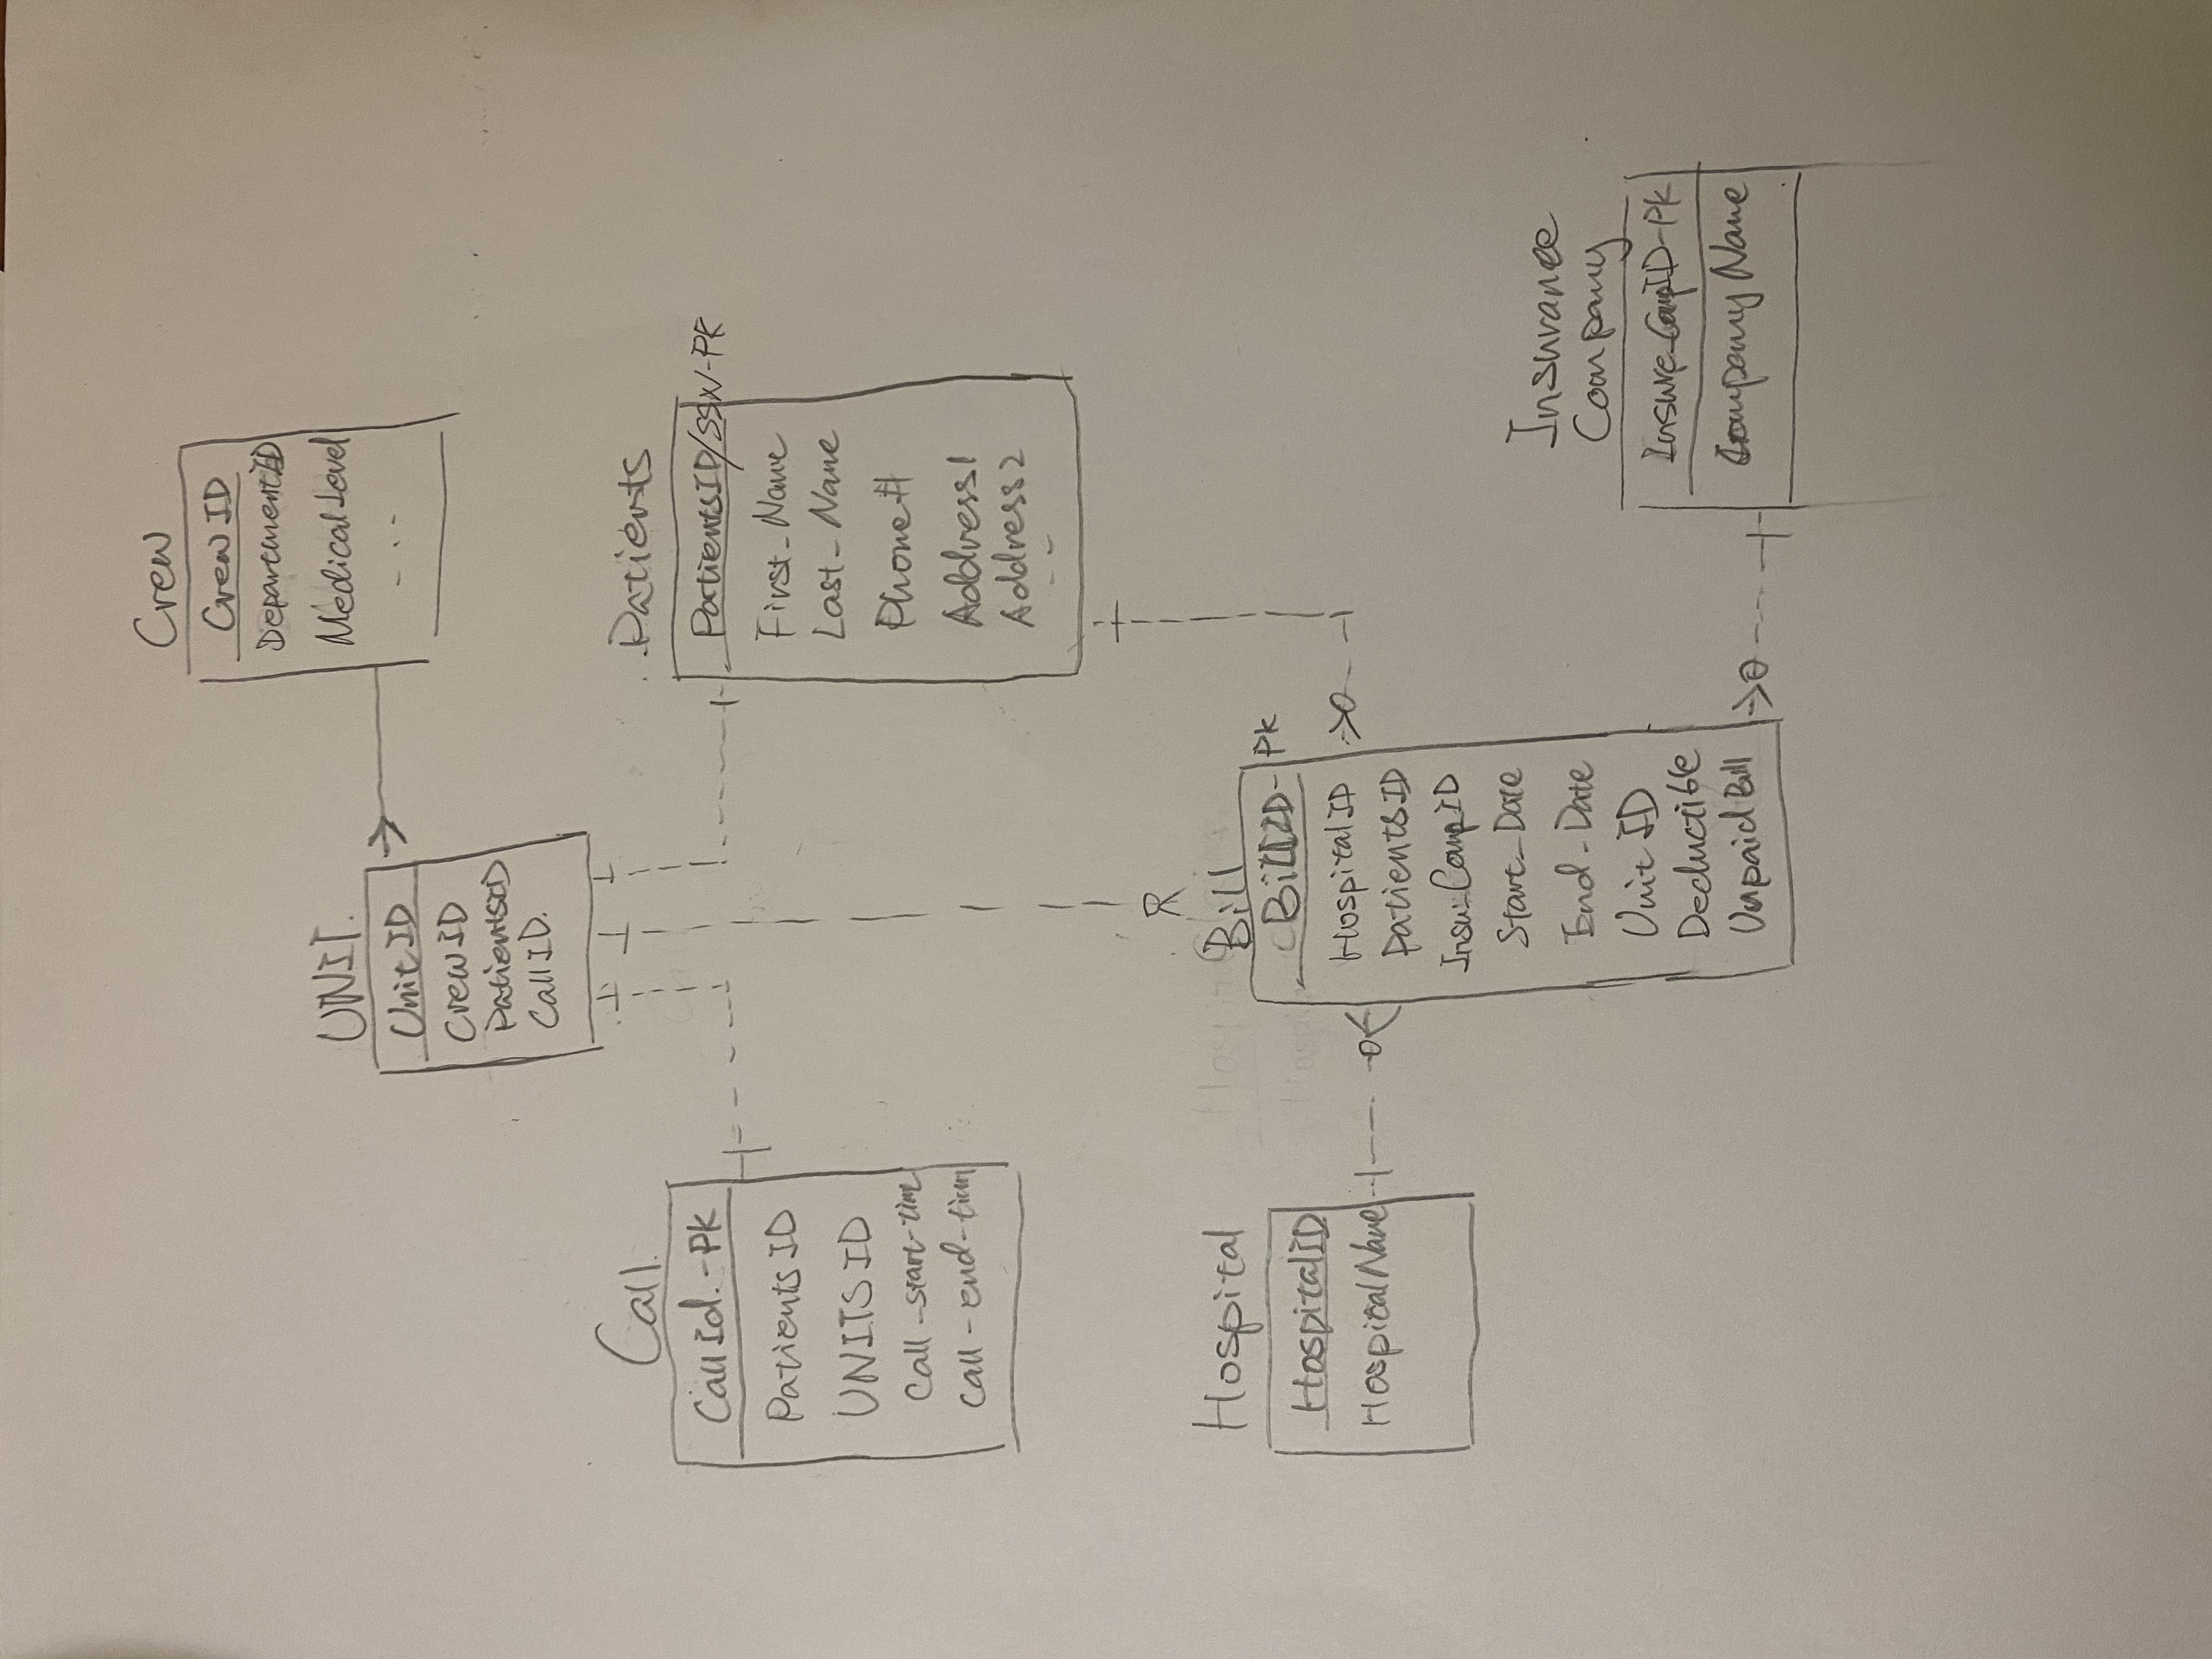 Crew
CrewID
DepartmentID
MedicalLevel
...
UNIT.
UnitID
CrewID
PatientsID
CallID.
Call.
CallId.-PK
PatientsID
UNITSID
Call-start-time
Call-end-time
Patients
PatientsID/SSN-PK
First_Name
Last_Name
Phone#
Address1
Address2
--
Hospital
HospitalID
HospitalName
Bill
BillID-PK
HospitalID
PatientsID
Insu_CompID
Start_Date
End_Date
UnitID
Deductible
UnpaidBill
Insurance
Company
Insure_CompID-PK
CompanyName